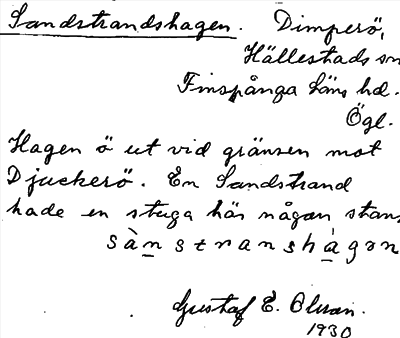 Sandstrandshagen. Dimperö,
Hällestads sn
Finspånga läns hd.
Ögl.
Hagen ö ut vid gränsen mot
Djuckerö. En Sandstrand
hade en stuga här någon stans
sànstranshàgən
Gustaf E. Olsson.
1930